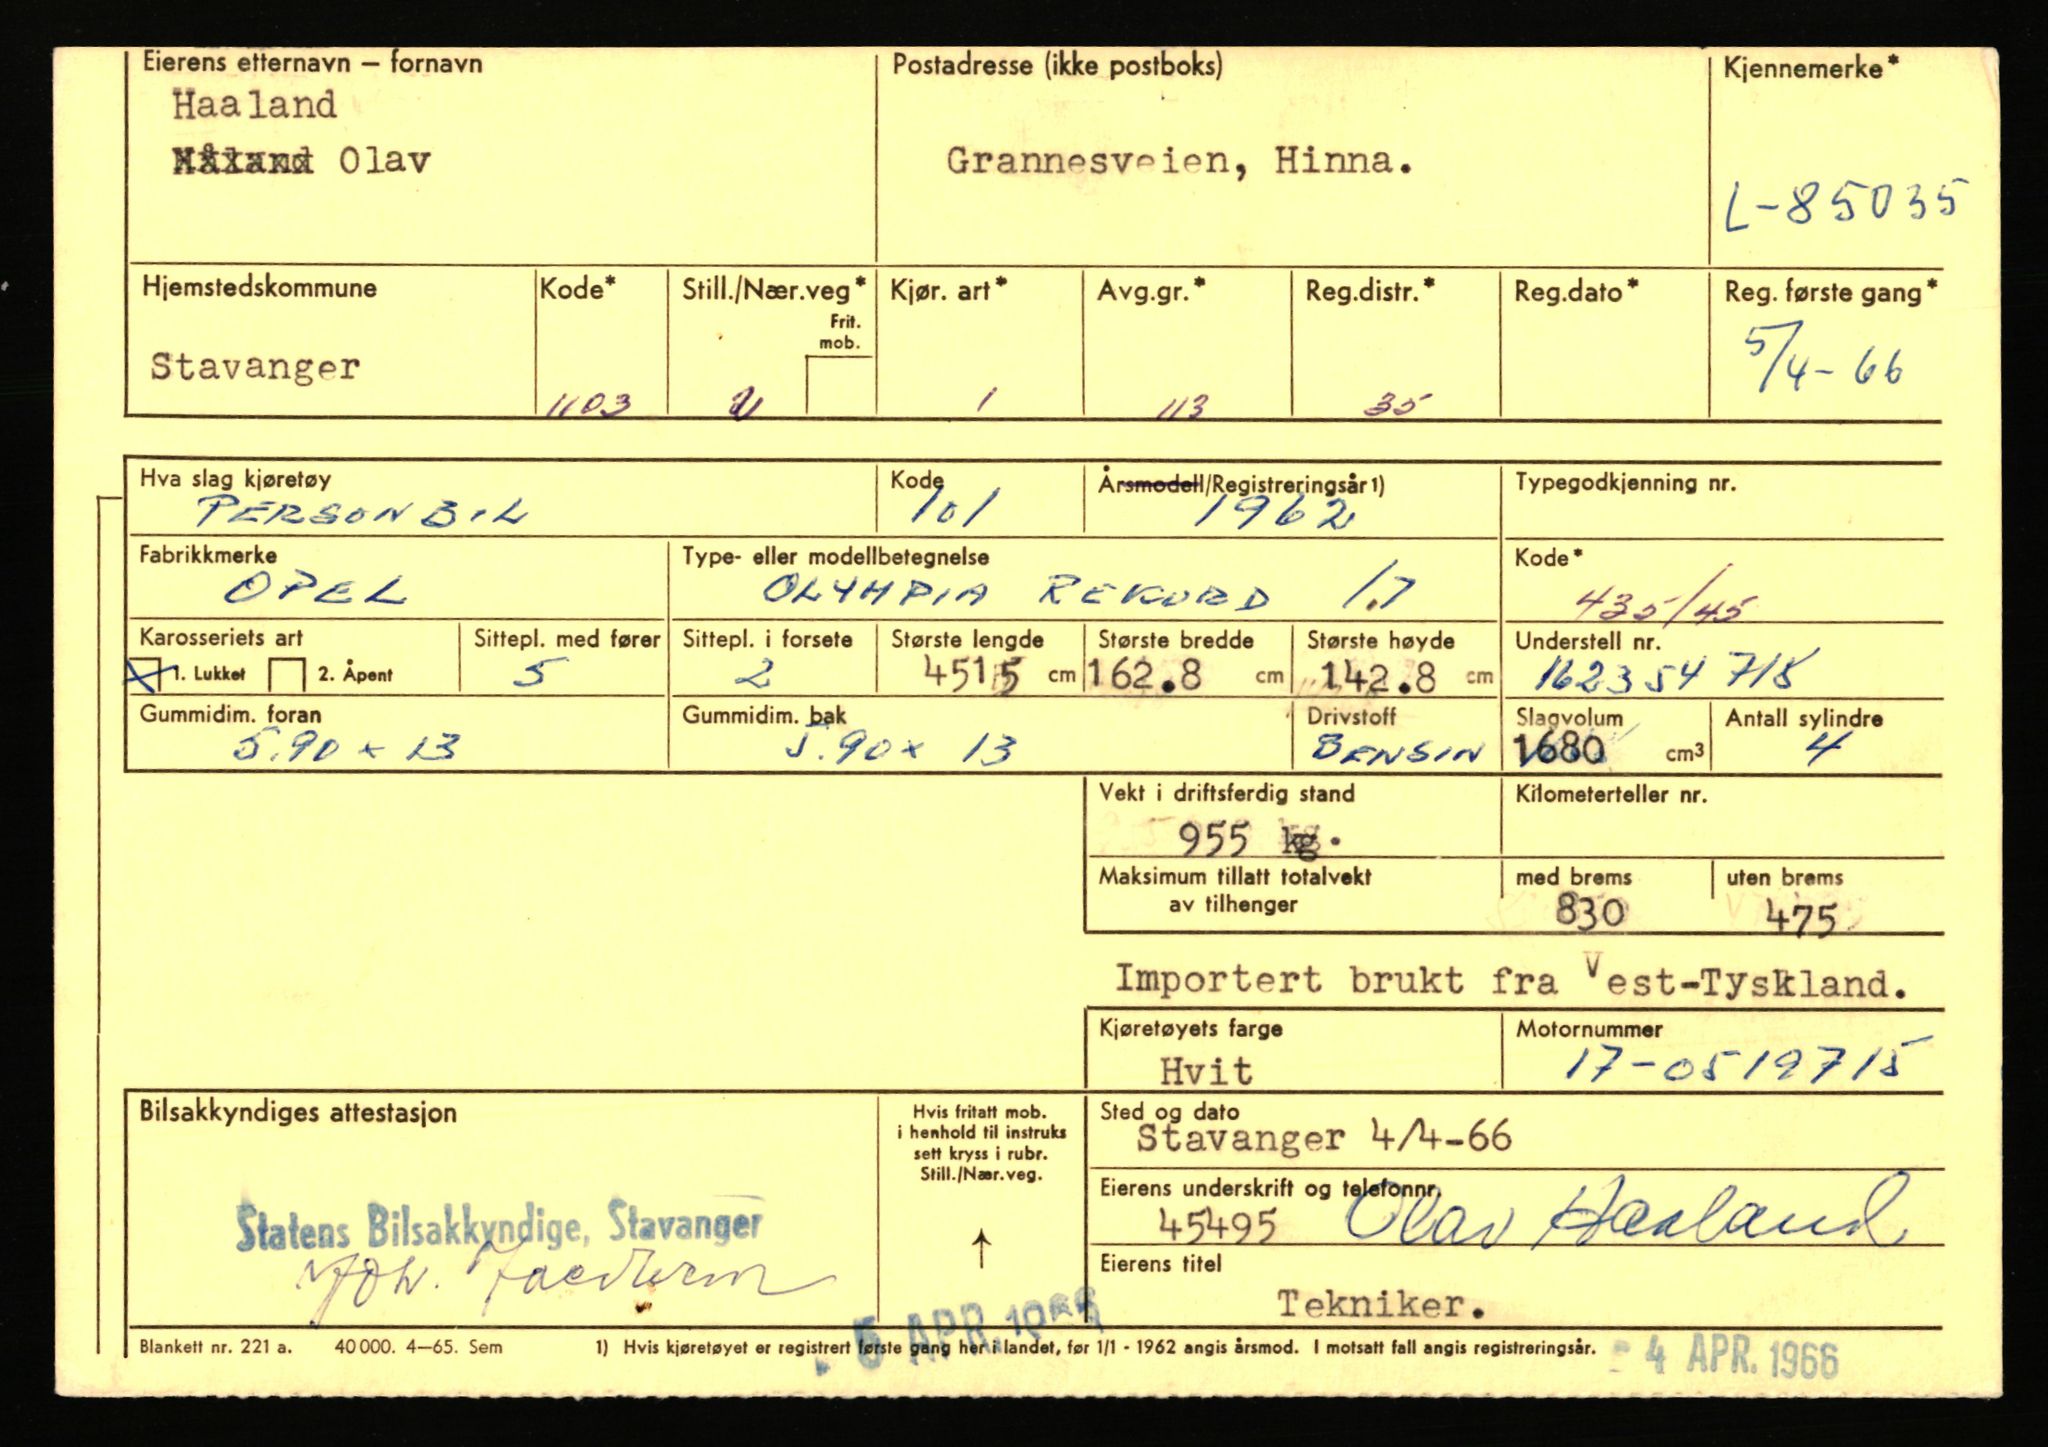 Eierens etternavn – fornavn
Haaland
Olav
Postadresse (ikke postboks)
Grannesveien, Hinna.
Kjennemerke*
L-85035
Hjemstedskommune
Stavanger
Kode*
1103
Still./Nær.veg*
Frit.
mob.
Kjør. art*
1
Avg.gr.*
113
Reg.distr.*
35
Reg.dato*
Reg. første gang*
5/4-66
Hva slag kjøretøy
PERSONBIL
Kode
101
Årsmodell/Registreringsår 1)
1962
Typegodkjenning nr.
Fabrikkmerke
OPEL
Type- eller modellbetegnelse
OLYMPIA REKORD 1.7
Kode*
435/45
Karosseriets art
1. Lukket 2. Åpent
Sittepl. med fører
5
Sittepl. i forsete
2
Største lengde
451,5 cm
Største bredde
162.8 cm
Største høyde
142.8 cm
Understell nr.
162354718
Gummidim. foran
5.90 x 13
Gummidim. bak
5.90 x 13
Drivstoff
BENSIN
Slagvolum
1680 cm3
Antall sylindre
4
Vekt i driftsferdig stand
955 kg.
Kilometerteller nr.
Maksimum tillatt totalvekt
av tilhenger
med brems
830
uten brems
475
Importert brukt fra Vest-Tyskland.
Kjøretøyets farge
Hvit
Motornummer
17-0519715
Bilsakkyndiges attestasjon
Statens Bilsakkyndige, Stavanger
Hvis fritatt mob.
i henhold til instruks
sett kryss i rubr.
Still./Nær.veg.
Sted og dato
Stavanger 4/4-66
Eierens underskrift og telefonnr.
45495 Olav Haaland
Eierens titel
Tekniker.
5 APR. 1966
Blankett nr. 221 a. 40 000. 4–65. Sem
1) Hvis kjøretøyet er registrert første gang her i landet, før 1/1 - 1962 angis årsmod. I motsatt fall angis registreringsår.
- 4 APR. 1966